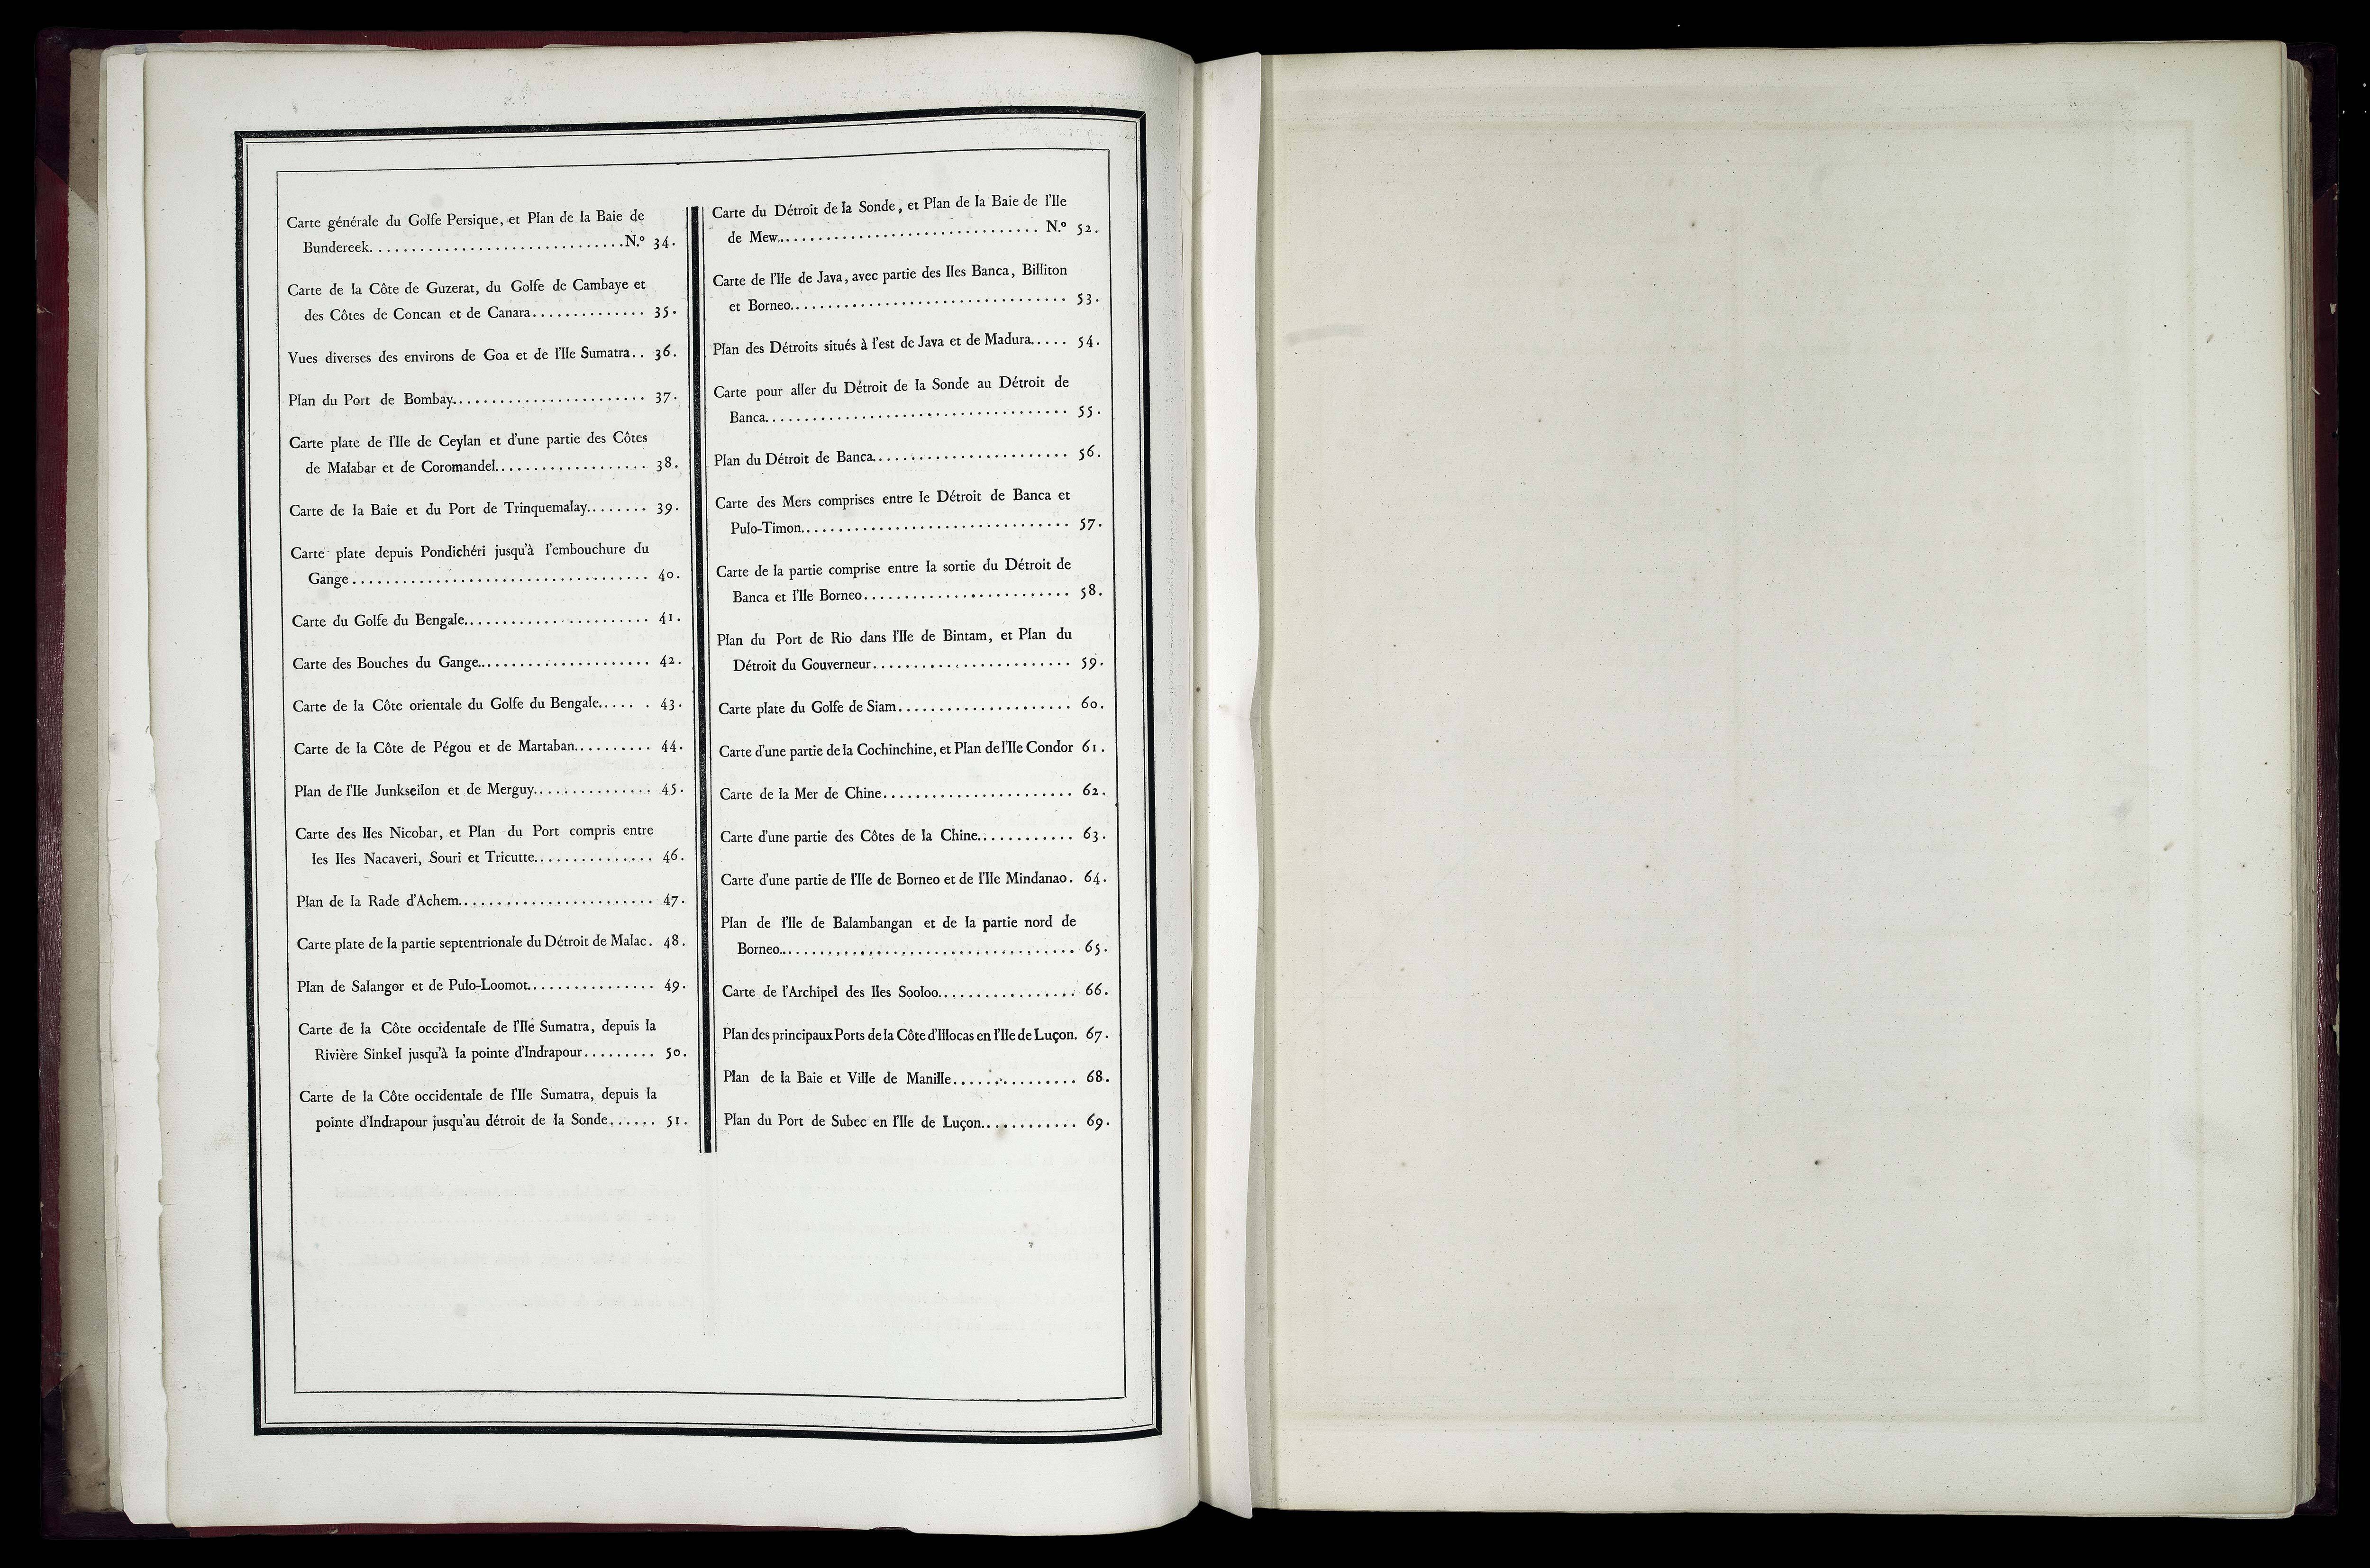 Carte générale du Golfe Persique, et Plan de la Baie de
Bundereek................................N.º 34.
Carte de la Côte de Guzerat, du Golfe de Cambaye et
des Côtes de Concan et de Canara.............. 35.
Vues diverses des environs de Goa et de l'Ile Sumatra.. 36.
Plan du Port de Bombay........................ 37.
Carte plate de l'Ile de Ceylan et d'une partie des Côtes
de Malabar et de Coromandel................... 38.
Carte de la Baie et du Port de Trinquemalay........ 39.
Carte plate depuis Pondichéri jusqu'à l'embouchure du
Gange.................................... 40.
Carte du Golfe du Bengale....................... 41.
Carte des Bouches du Gange...................... 42.
Carte de la Côte orientale du Golfe du Bengale...... 43.
Carte de la Côte de Pégou et de Martaban.......... 44.
Plan de l'Ile Junkseilon et de Merguy............... 45.
Carte des Iles Nicobar, et Plan du Port compris entre
les Iles Nacaveri, Souri et Tricutte............... 46.
Plan de la Rade d'Achem........................ 47.
Carte plate de la partie septentrionale du Détroit de Malac. 48.
Plan de Salangor et de Pulo-Loomot................ 49.
Carte de la Côte occidentale de l'Ile Sumatra, depuis la
Rivière Sinkel jusqu'à la pointe d'Indrapour......... 50.
Carte de la Côte occidentale de l'Ile Sumatra, depuis la
pointe d'Indrapour jusqu'au détroit de la Sonde...... 51.
Carte du Détroit de la Sonde, et Plan de la Baie de l'Ile
de Mew................................. N.º 52.
Carte de l'Ile de Java, avec partie des Iles Banca, Billiton
et Borneo.................................. 53.
Plan des Détroits situés à l'est de Java et de Madura..... 54.
Carte pour aller du Détroit de la Sonde au Détroit de
Banca..................................... 55.
Plan du Détroit de Banca........................ 56.
Carte des Mers comprises entre le Détroit de Banca et
Pulo-Timon................................. 57.
Carte de la partie comprise entre la sortie du Détroit de
Banca et l'Ile Borneo.......................... 58.
Plan du Port de Rio dans l'Ile de Bintam, et Plan du
Détroit du Gouverneur........................ 59.
Carte plate du Golfe de Siam...................... 60.
Carte d'une partie de la Cochinchine, et Plan de l'Ile Condor 61.
Carte de la Mer de Chine........................ 62.
Carte d'une partie des Côtes de la Chine............ 63.
Carte d'une partie de l'Ile de Borneo et de l'Ile Mindanao. 64.
Plan de l'Ile de Balambangan et de la partie nord de
Borneo..................................... 65.
Carte de l'Archipel des Iles Sooloo................. 66.
Plan des principaux Ports de la Côte d'Illocas en l'Ile de Luçon. 67.
Plan de la Baie et Ville de Manille............... 68.
Plan du Port de Subec en l'Ile de Luçon............ 69.